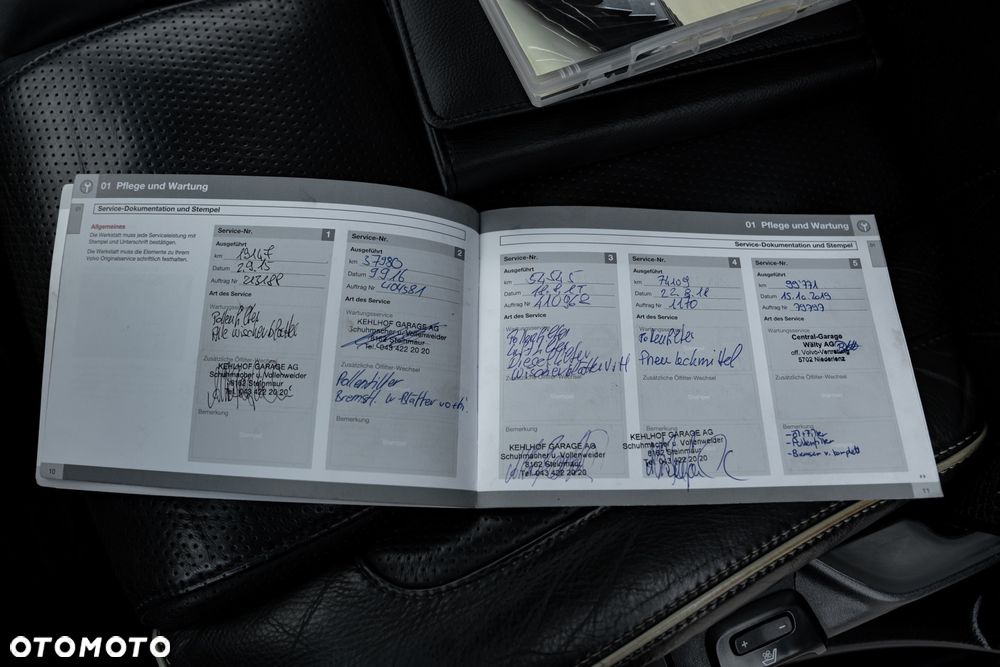 01 Pflege und Wartung
Service-Dokumentation und Stempel
Allgemeines
Die Werkstatt muss jede Serviceleistung mit
Stempel und Unterschrift bestätigen.
Die Werkstatt muss die Elemente zu Ihrem
Volvo Originalservice schriftlich festhalten.
Service-Nr. 1
Ausgeführt
km 19147
Datum 2.9.15
Auftrag Nr 213188
Art des Service
Wartungsservice
Pollenfilter
Alle wischerblätter
Zusätzliche Ölfilter-Wechsel
KEHLHOF GARAGE AG
Schuhmacher u. Vollenweider
8162 Steinmaur
Tel. 043 422 20 20
Bemerkung
Stempel
10
Service-Nr. 2
Ausgeführt
km 37980
Datum 9.9.16
Auftrag Nr 404581
Art des Service
Wartungsservice
KEHLHOF GARAGE AG
Schuhmacher u. Vollenweider
8162 Steinmaur
Tel. 043 422 20 20
Zusätzliche Ölfilter-Wechsel
Pollenfilter
Bremsfl. w blätter
Bemerkung
Stempel
01 Pflege und Wartung
Service-Dokumentation und Stempel
Service-Nr. 3
Ausgeführt
km 54545
Datum
Auftrag Nr
Art des Service
Wartungsservice
Pollenfilter
Luftfilter
Dieselfilter
Wischerblätter
Zusätzliche Ölfilter-Wechsel
Stempel
Bemerkung
KEHLHOF GARAGE AG
Schuhmacher u. Vollenweider
8162 Steinmaur
Tel. 043 422 20 20
Service-Nr. 4
Ausgeführt
km 74109
Datum 22.8.18
Auftrag Nr 1170
Art des Service
Wartungsservice
Pollenfilter
Zusätzliche Ölfilter-Wechsel
Stempel
Bemerkung
KEHLHOF GARAGE AG
Schuhmacher u. Vollenweider
8162 Steinmaur
Tel. 043 422 20 20
Service-Nr. 5
Ausgeführt
km 99771
Datum 15.10.2019
Auftrag Nr 79797
Art des Service
Wartungsservice
Central-Garage
Wälty AG
off. Volvo-Vertretung
5702 Niederlenz
Zusätzliche Ölfilter-Wechsel
Stempel
Bemerkung
- Pollenfilter
- Bremsen v. komplett
11
OTOMOTO